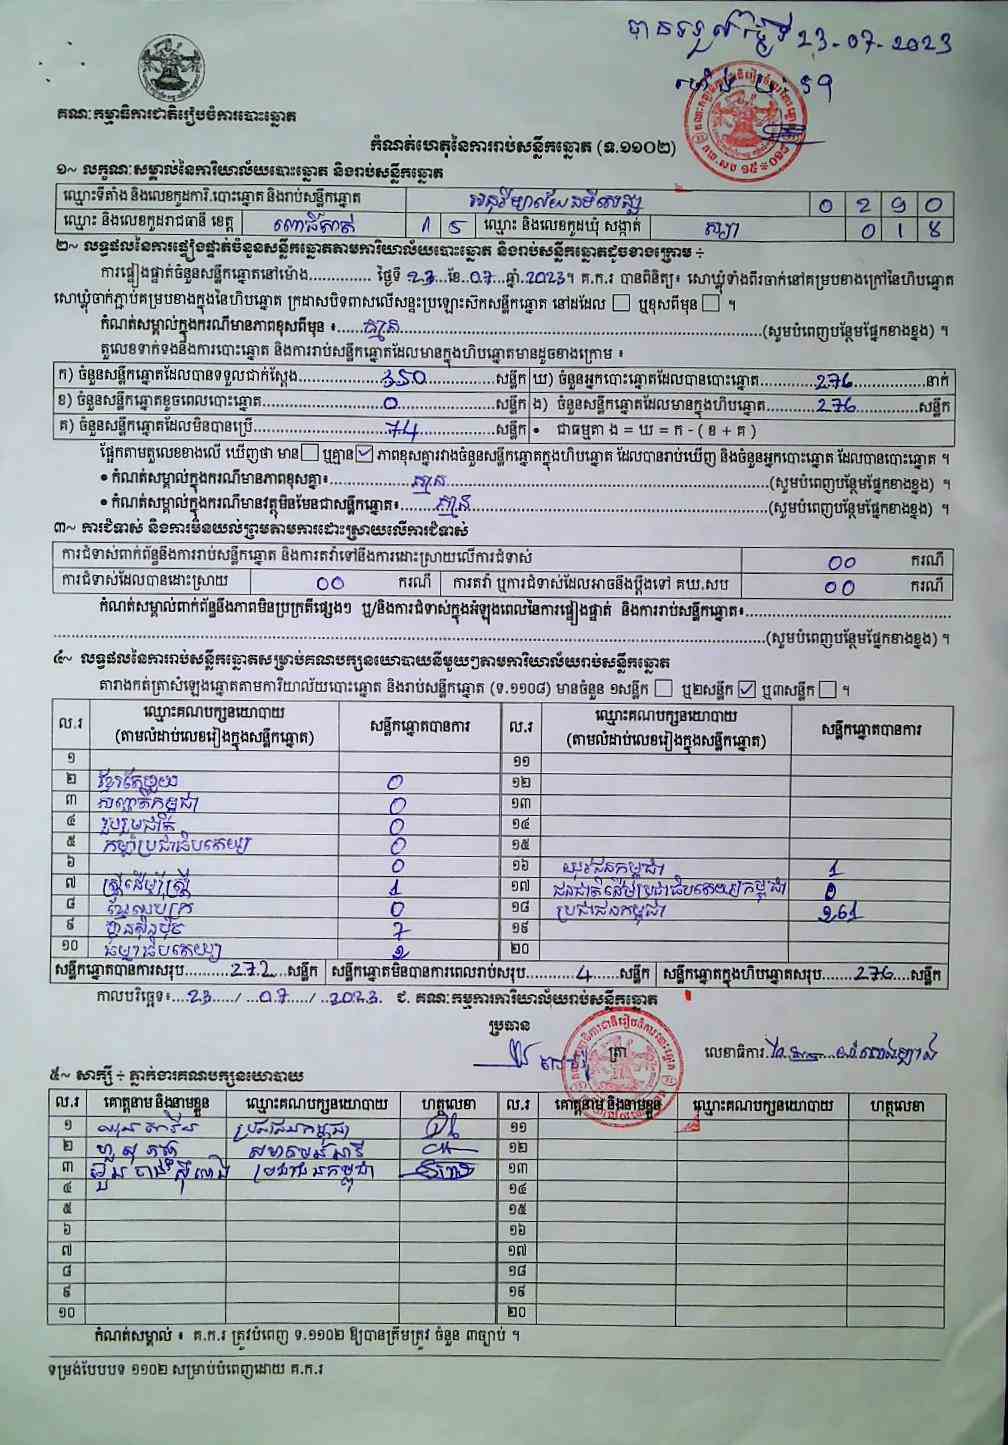 បានទទួលថ្ងៃទី 23-07-2023
ម៉ោង
គណៈកម្មាធិការជាតិរៀបចំការបោះឆ្នោត
កំណត់ហេតុនៃការរាប់សន្លឹកឆ្នោត (ទ.១១០២)
១~ លក្ខណៈសម្គាល់នៃការិយាល័យបោះឆ្នោត និងរាប់សន្លឹកឆ្នោត
ឈ្មោះទីតាំង និងលេខកូដការិ.បោះឆ្នោត និងរាប់សន្លឹកឆ្នោត អនុវិទ្យាល័យ 0 2 9 0
ឈ្មោះ និងលេខកូដរាជធានី ខេត្ត ពោធិ៍សាត់ 1 5 ឈ្មោះ និងលេខកូដឃុំ សង្កាត់ 0 1 8
២~ លទ្ធផលនៃការផ្ទៀងផ្ទាត់ចំនួនសន្លឹកឆ្នោតតាមការិយាល័យបោះឆ្នោត និងរាប់សន្លឹកឆ្នោតដូចខាងក្រោម ÷
ការផ្ទៀងផ្ទាត់ចំនួនសន្លឹកឆ្នោតនៅម៉ោង............. ថ្ងៃទី 23...ខែ..07...ឆ្នាំ.2023។ គ.ក.រ បានពិនិត្យ៖ សោឃ្លុំទាំងពីរចាក់នៅគម្របខាងក្រៅនៃហិបឆ្នោត
សោឃ្លុំចាក់ភ្ជាប់គម្របខាងក្នុងនៃហិបឆ្នោត ក្រដាសបិទពាសលើសន្ទះប្រឡោះស៊កសន្លឹកឆ្នោត នៅដដែល ☐ ឬខុសពីមុន ☐ ។
កំណត់សម្គាល់ក្នុងករណីមានភាពខុសពីមុន ៖.....គ្មាន......(សូមបំពេញបន្ថែមផ្នែកខាងខ្នង) ។
តួលេខទាក់ទងនឹងការបោះឆ្នោត និងការរាប់សន្លឹកឆ្នោតដែលមានក្នុងហិបឆ្នោតមានដូចខាងក្រោម ៖
ក) ចំនួនសន្លឹកឆ្នោតដែលបានទទួលជាក់ស្តែង......350......សន្លឹក ឃ) ចំនួនអ្នកបោះឆ្នោតដែលបានបោះឆ្នោត......276......នាក់
ខ) ចំនួនសន្លឹកឆ្នោតខូចពេលបោះឆ្នោត......0......សន្លឹក ង) ចំនួនសន្លឹកឆ្នោតដែលមានក្នុងហិបឆ្នោត......276......សន្លឹក
គ) ចំនួនសន្លឹកឆ្នោតដែលមិនបានប្រើ......74......សន្លឹក • ជាធម្មតា ង = ឃ = ក - ( ខ + គ )
ផ្អែកតាមតួលេខខាងលើ ឃើញថា មាន ☐ ឬគ្មាន ☑ ភាពខុសគ្នារវាងចំនួនសន្លឹកឆ្នោតក្នុងហិបឆ្នោត ដែលបានរាប់ឃើញ និងចំនួនអ្នកបោះឆ្នោត ដែលបានបោះឆ្នោត ។
• កំណត់សម្គាល់ក្នុងករណីមានភាពខុសគ្នា៖......គ្មាន......(សូមបំពេញបន្ថែមផ្នែកខាងខ្នង) ។
• កំណត់សម្គាល់ក្នុងករណីមានវត្ថុមិនមែនជាសន្លឹកឆ្នោត៖......គ្មាន......(សូមបំពេញបន្ថែមផ្នែកខាងខ្នង) ។
៣~ ការជំទាស់ និងការមិនយល់ព្រមតាមការដោះស្រាយលើការជំទាស់
ការជំទាស់ពាក់ព័ន្ធនឹងការរាប់សន្លឹកឆ្នោត និងការតវ៉ាទៅនឹងការដោះស្រាយលើការជំទាស់ 00 ករណី
ការជំទាស់ដែលបានដោះស្រាយ 00 ករណី ការតវ៉ា ឬការជំទាស់ដែលអាចនឹងប្តឹងទៅ គឃ.សប 00 ករណី
កំណត់សម្គាល់ពាក់ព័ន្ធនឹងភាពមិនប្រក្រតីផ្សេងៗ ឬ/និងការជំទាស់ក្នុងអំឡុងពេលនៃការផ្ទៀងផ្ទាត់ និងការរាប់សន្លឹកឆ្នោត៖......
......(សូមបំពេញបន្ថែមផ្នែកខាងខ្នង) ។
៤~ លទ្ធផលនៃការរាប់សន្លឹកឆ្នោតសម្រាប់គណបក្សនយោបាយនីមួយៗតាមការិយាល័យរាប់សន្លឹកឆ្នោត
តារាងកត់ត្រាសំឡេងឆ្នោតតាមការិយាល័យបោះឆ្នោត និងរាប់សន្លឹកឆ្នោត (ទ.១១០៨) មានចំនួន ១សន្លឹក ☐ ឬ២សន្លឹក ☑ ឬ៣សន្លឹក ☐ ។
ល.រ ឈ្មោះគណបក្សនយោបាយ (តាមលំដាប់លេខរៀងក្នុងសន្លឹកឆ្នោត) សន្លឹកឆ្នោតបានការ ល.រ ឈ្មោះគណបក្សនយោបាយ (តាមលំដាប់លេខរៀងក្នុងសន្លឹកឆ្នោត) សន្លឹកឆ្នោតបានការ
១ ១១
២ ខ្មែរតែមួយ 0 ១២
៣ សញ្ជាតិកម្ពុជា 0 ១៣
៤ រួបរួមជាតិ 0 ១៤
៥ កម្លាំងប្រជាធិបតេយ្យ 0 ១៥
៦ 0 ១៦ យុវជនកម្ពុជា 1
៧ ស្ត្រីដើម្បីស្ត្រី 1 ១៧ ជនជាតិដើមប្រជាធិបតេយ្យកម្ពុជា 0
៨ ខ្មែរអភិរក្ស 0 ១៨ ប្រជាជនកម្ពុជា 261
៩ ហ្វ៊ុនស៊ិនប៉ិច 7 ១៩
១០ ធម្មាធិបតេយ្យ 2 ២០
សន្លឹកឆ្នោតបានការសរុប......272...សន្លឹក សន្លឹកឆ្នោតមិនបានការពេលរាប់សរុប......4......សន្លឹក សន្លឹកឆ្នោតក្នុងហិបឆ្នោតសរុប......276...សន្លឹក
កាលបរិច្ឆេទ៖...23...../...07..../...2023. ជ. គណៈកម្មការការិយាល័យរាប់សន្លឹកឆ្នោត
ប្រធាន ត្រា លេខាធិការ
៥~ សាក្សី ÷ ភ្នាក់ងារគណបក្សនយោបាយ
ល.រ គោត្តនាម និងនាមខ្លួន ឈ្មោះគណបក្សនយោបាយ ហត្ថលេខា ល.រ គោត្តនាម និងនាមខ្លួន ឈ្មោះគណបក្សនយោបាយ ហត្ថលេខា
១ ប្រជាជនកម្ពុជា ១១
២ ១២
៣ ប្រជាជនកម្ពុជា ១៣
៤ ១៤
៥ ១៥
៦ ១៦
៧ ១៧
៨ ១៨
៩ ១៩
១០ ២០
កំណត់សម្គាល់ ៖ គ.ក.រ ត្រូវបំពេញ ទ.១១០២ ឱ្យបានត្រឹមត្រូវ ចំនួន ៣ច្បាប់ ។
ទម្រង់បែបបទ ១១០២ សម្រាប់បំពេញដោយ គ.ក.រ